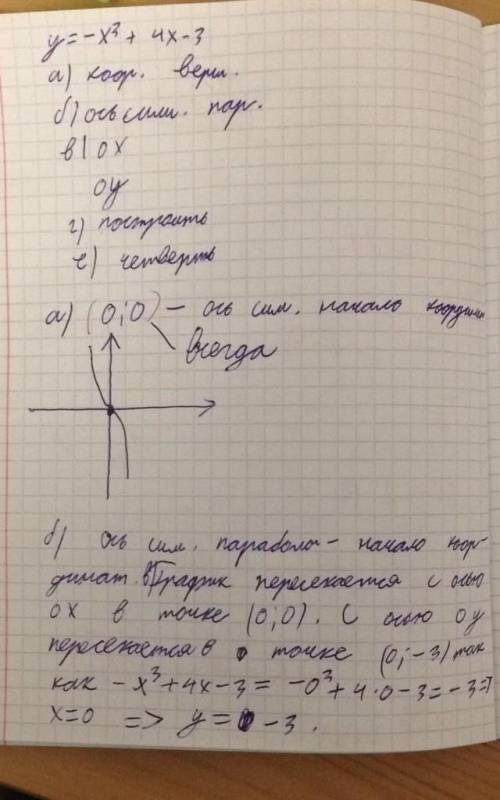 y = -x³ + 4x - 3
а) коор. верш.
б) ось сим. пар.
в) ох
оу
г) построить
е) четверть
а) (0;0) - ось сим. начало координ
всегда
б) ось сим. параболы - начало коор-
динат. в) График пересекается с осью
ох в точке (0;0). С осью оу
пересекается в точке (0;-3) так
как -x³+4x-3 = -0³+4·0-3=-3=>
x=0 => y= -3.